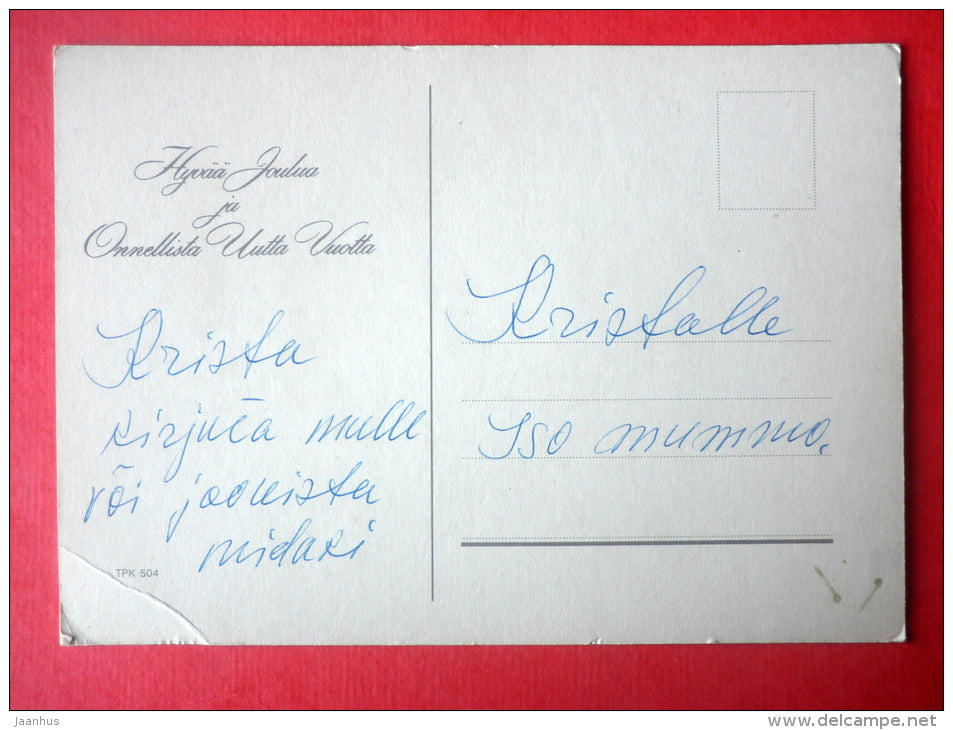 Hyvää Joulua
ja
Onnellista Uutta Vuotta
Krista
kirjuta mulle
või joonista
midagi
TPK 504
Kristalle
Iso mummo.
jaanhus
www.delcampe.net